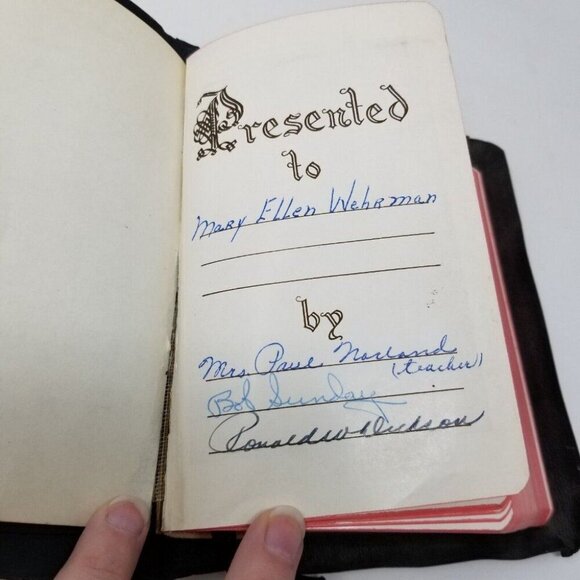 Presented
to
Mary Ellen Wehrman
by
Mrs. Paul Norland
(teacher)
Bob Sunday
Ronald W Dickson